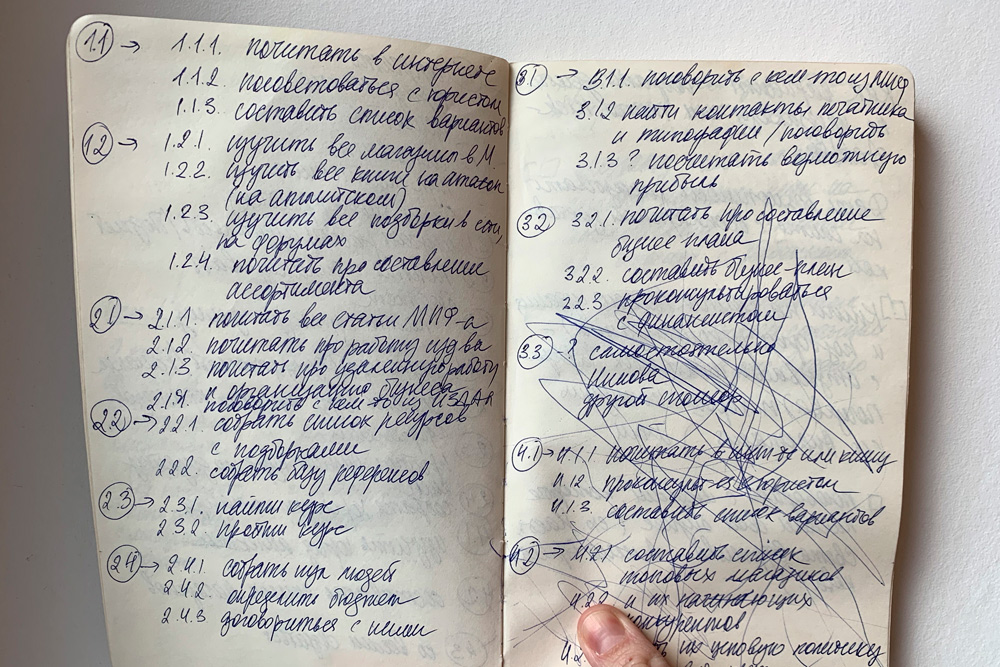 1.1 → 1.1.1. почитать в интернете
1.1.2. посоветоваться с юристом
1.1.3 составить список вариантов
1.2 → 1.2.1. изучить все магазины в М.
1.2.2. изучить все книги на амазон
(на английском)
1.2.3. изучить все подборки в сети,
на форумах
1.2.4. почитать про составление
ассортимента
2.1 → 2.1.1. почитать все статьи МИФ-а
2.1.2. почитать про работу изд-ва
2.1.3 почитать про удаленную работу
и организацию бизнеса
2.1.4. поговорить с кем-то из
2.2 → 2.2.1. собрать список ресурсов
с подборками
2.2.2. собрать базу референсов
2.3 → 2.3.1. найти курс
2.3.2. пройти курс
2.4 → 2.4.1. собрать пул людей
2.4.2 определить бюджет
2.4.3 договориться с ними
3.1 → 3.1.1. поговорить с кем-то из МИФ
3.1.2 найти контакты печатника
и типографии / поговорить
3.1.3 ? посчитать возможную
прибыль
3.2 3.2.1. почитать про составление
бизнес плана
3.2.2. составить бизнес-план
2.2.3 проконсультироваться
с финансистом
3.3 → ? самостоятельно
другой
4.1 → 4.1.1 почитать в инт-те или книгу
4.1.2 проконсульт-ся с юристом
4.1.3. составить список вариантов
4.2 → 4.2.1 составить список
топовых
4.2.2 и их начинающих
конкурентов
4.2. их ценовую политику